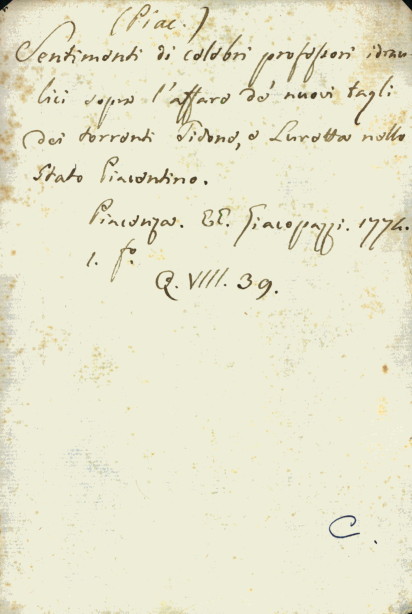 (Piac.)
Sentimenti di celebri professori idrau
lici sopra l'affare de' nuovi tagli
dei torrenti Tidone, e Luretta nello
Stato Piacentino.
Piacenza. EE. Giacopazzi. 1774.
1. fº
Q. VIII. 39.
C.